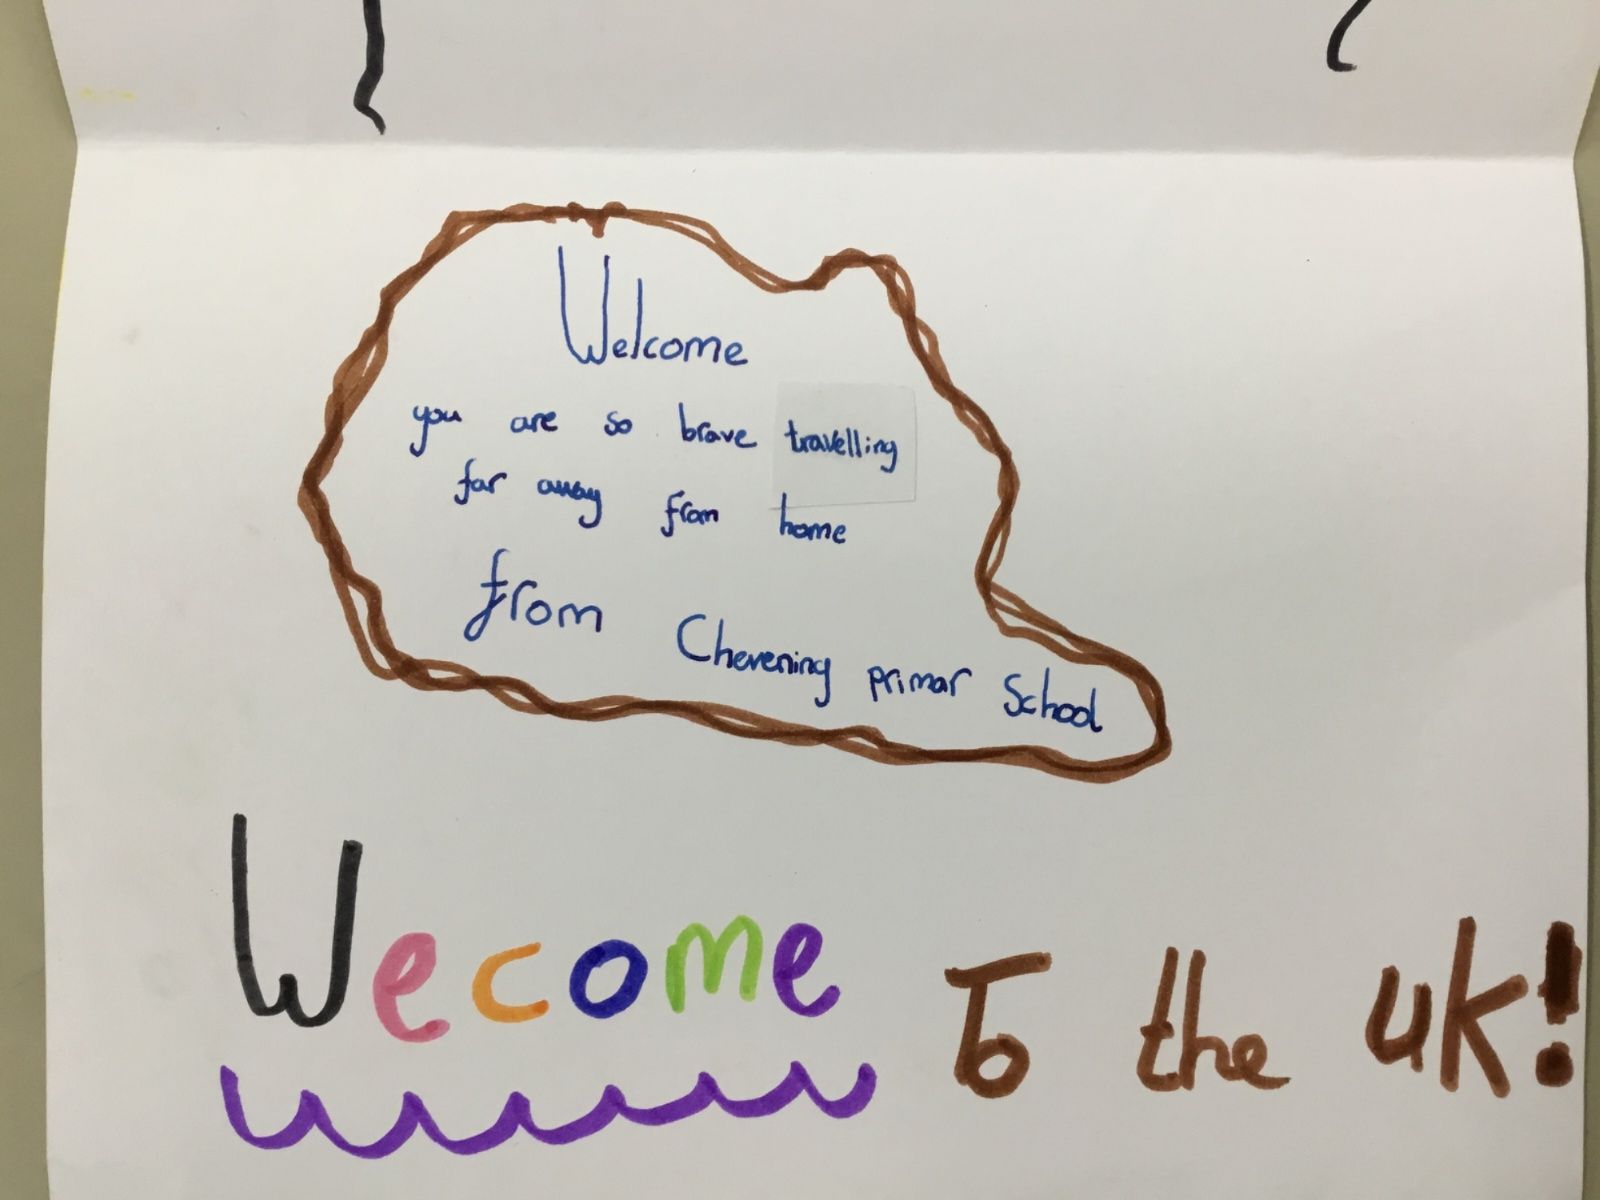 Welcome
you are so brave travelling
far away from home
from Chevening primar School
Wecome To the uk!